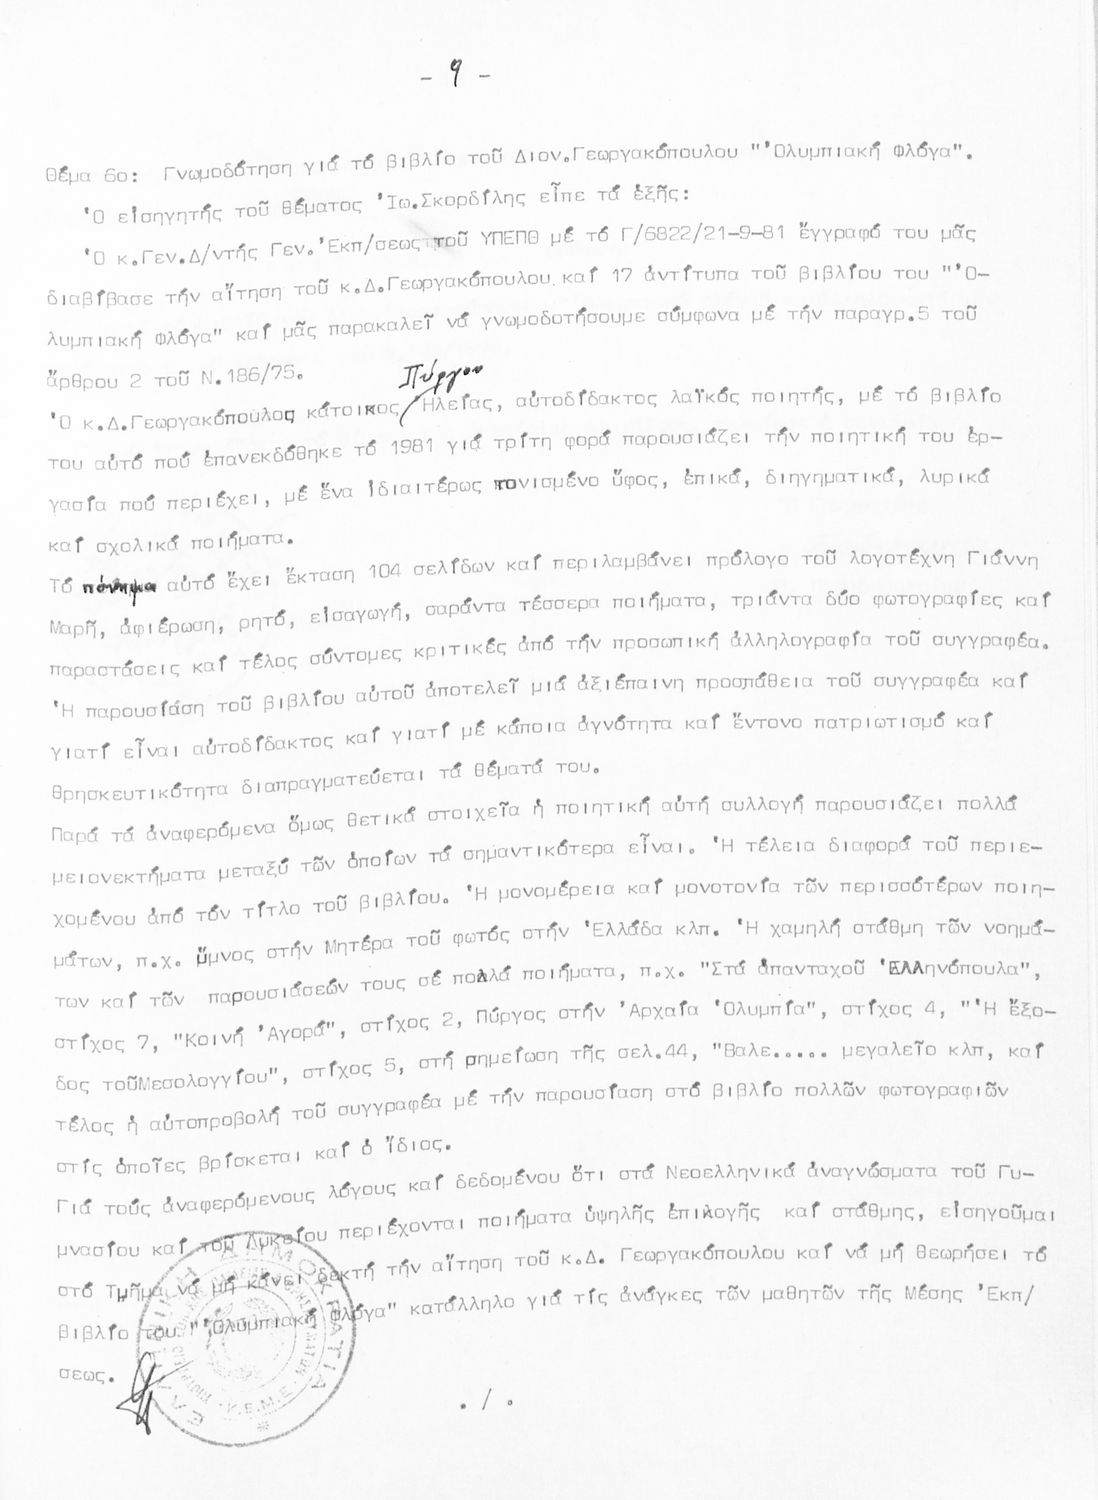 - 9 -
Θέμα 6ο: Γνωμοδότηση γιά τό βιβλίο τοῦ Διον.Γεωργακόπουλου "'Ολυμπιακή Φλόγα".
'Ο εἰσηγητής τοῦ θέματος 'Ιω.Σκορδίλης εἶπε τά ἑξῆς:
'Ο κ.Γεν.Δ/ντής Γεν.'Εκπ/σεως τοῦ ΥΠΕΠΘ μέ τό Γ/6822/21-9-81 ἔγγραφό του μᾶς
διαβίβασε τήν αἴτηση τοῦ κ.Δ.Γεωργακόπουλου καί 17 ἀντίτυπα τοῦ βιβλίου του "'Ο-
λυμπιακή Φλόγα" καί μᾶς παρακαλεῖ νά γνωμοδοτήσουμε σύμφωνα μέ τήν παραγρ.5 τοῦ
ἄρθρου 2 τοῦ Ν.186/75.
Πύργου
'Ο κ.Δ.Γεωργακόπουλος κάτοικος / 'Ηλείας, αὐτοδίδακτος λαϊκός ποιητής, μέ τό βιβλίο
του αὐτό πού ἐπανεκδόθηκε τό 1981 γιά τρίτη φορά παρουσιάζει τήν ποιητική του ἐρ-
γασία πού περιέχει, μέ ἕνα ἰδιαιτέρως τονισμένο ὕφος, ἐπικά, διηγηματικά, λυρικά
καί σχολικά ποιήματα.
Τό πόνημα αὐτό ἔχει ἔκταση 104 σελίδων καί περιλαμβάνει πρόλογο τοῦ λογοτέχνη Γιάννη
Μαρῆ, ἀφιέρωση, ρητό, εἰσαγωγή, σαράντα τέσσερα ποιήματα, τριάντα δύο φωτογραφίες καί
παραστάσεις καί τέλος σύντομες κριτικές ἀπό τήν προσωπική ἀλληλογραφία τοῦ συγγραφέα.
'Η παρουσίαση τοῦ βιβλίου αὐτοῦ ἀποτελεῖ μιά ἀξιέπαινη προσπάθεια τοῦ συγγραφέα καί
γιατί εἶναι αὐτοδίδακτος καί γιατί μέ κάποια ἁγνότητα καί ἔντονο πατριωτισμό καί
θρησκευτικότητα διαπραγματεύεται τά θέματά του.
Παρά τά ἀναφερόμενα ὅμως θετικά στοιχεῖα ἡ ποιητική αὐτή συλλογή παρουσιάζει πολλά
μειονεκτήματα μεταξύ τῶν ὁποίων τά σημαντικότερα εἶναι. 'Η τέλεια διαφορά τοῦ περιε-
χομένου ἀπό τόν τίτλο τοῦ βιβλίου. 'Η μονομέρεια καί μονοτονία τῶν περισσότερων ποιη-
μάτων, π.χ. ὕμνος στήν Μητέρα τοῦ φωτός στήν 'Ελλάδα κλπ. 'Η χαμηλή στάθμη τῶν νοημά-
των καί τῶν παρουσιάσεών τους σέ πολλά ποιήματα, π.χ. "Στά ἁπανταχοῦ 'Ελληνόπουλα",
στίχος 7, "Κοινή 'Αγορά", στίχος 2, Πύργος στήν 'Αρχαία 'Ολυμπία", στίχος 4, "'Η ἔξο-
δος τοῦΜεσολογγίου", στίχος 5, στή σημείωση τῆς σελ.44, "Βαλε..... μεγαλεῖο κλπ, καί
τέλος ἡ αὐτοπροβολή τοῦ συγγραφέα μέ τήν παρουσίαση στό βιβλίο πολλῶν φωτογραφιῶν
στίς ὁποῖες βρίσκεται καί ὁ ἴδιος.
Γιά τούς ἀναφερόμενους λόγους καί δεδομένου ὅτι στά Νεοελληνικά ἀναγνώσματα τοῦ Γυ-
μνασίου καί τοῦ Λυκείου περιέχονται ποιήματα ὑψηλῆς ἐπιλογῆς καί στάθμης, εἰσηγοῦμαι
στό Τμῆμα νά μή κάνει δεκτή τήν αἴτηση τοῦ κ.Δ. Γεωργακόπουλου καί νά μή θεωρήσει τό
βιβλίο του "'Ολυμπιακή Φλόγα" κατάλληλο γιά τίς ἀνάγκες τῶν μαθητῶν τῆς Μέσης 'Εκπ/
σεως.
ΕΛΛΗΝΙΚΗ ΔΗΜΟΚΡΑΤΙΑ
Κ.Ε.Μ.Ε.
./.